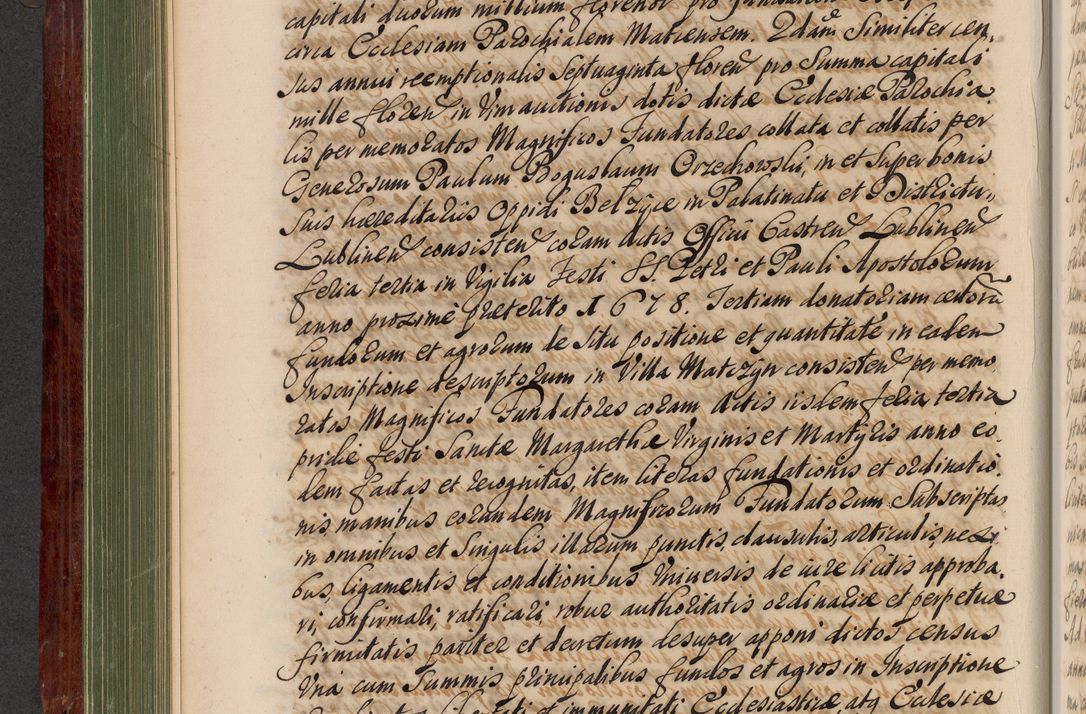 capitali duorum millium floren̄ pro fundatione
circa Ecclesiam Parochialem Matiensem. 2dam Similiter cen,
sus annui reemptionalis Septuaginta floren̄ pro Summa capitali
mille floren̄ in Vim auctionis dotis dictæ Ecclesiæ Parochia,
lis per memoratos Magnificos Fundatores collata et collatis per
Generosum Paulum Boguslaum Orzechowski, in et Super bonis
Suis hæreditariis Oppidi Belzyce in Palatinatu et Districtu,,
Lublinen̄ consisten̄ coram Actis Officii Castren̄ Lublinen̄
feria tertia in Vigilia Festi SS. Petri et Pauli Apostolorum
anno proxime præterito 1678. Tertiam donatoriam certorū
fundorum et agrorum de Situ positione et quantitate in eadem
Inscriptione descriptorum in Villa Matczyn consisten̄ per memo
ratos Magnificos Fundatores coram Actis iisdem feria tertia
pridie festi Sanctæ Margarethæ Virginis et Martyris anno eo,
dem factas et recognitas, item literas fundationis et ordinatio,
nis manibus eorundem Magnificorum Fundatorum Subscriptas
in omnibus et Singulis illarum punctis, clausulis, articulis, nexi,
bus, ligamentis et conditionibus Vniuersis de iure licitis approba,
ri, confirmari, ratificari, robur authoritatis ordinariæ et perpetuæ
firmitatis pariter et decretum desuper apponi dictos census
Vna cum Summis principalibus fundos et agros in Inscriptione
et immunitati Ecclesiasticæ, atq Ecclesiæ